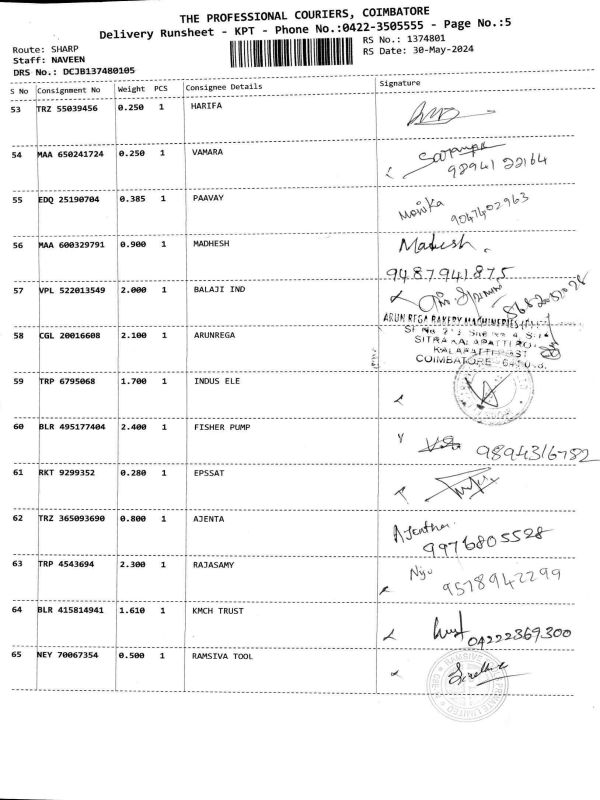 THE PROFESSIONAL COURIERS, COIMBATORE
Delivery Runsheet - KPT - Phone No.:0422-3505555 - Page No.:5
Route: SHARP
RS No.: 1374801
Staff: NAVEEN
RS Date: 30-May-2024
DRS No.: DCJB137480105
S No Consignment No Weight PCS Consignee Details Signature
53 TRZ 55039456 0.250 1 HARIFA
54 MAA 650241724 0.250 1 VAMARA
98941 22164
55 EDQ 25190704 0.385 1 PAAVAY Monika
9047402963
56 MAA 600329791 0.900 1 MADHESH Madesh.
9487941875
57 VPL 522013549 2.000 1 BALAJI IND
ARUN REGA BAKERY MACHINERIES
58 CGL 20016608 2.100 1 ARUNREGA
SITRA KALAPATTI RO
KALAPATTI POST
COIMBATORE
59 TRP 6795068 1.700 1 INDUS ELE
60 BLR 495177404 2.400 1 FISHER PUMP 9894316782
61 RKT 9299352 0.280 1 EPSSAT
62 TRZ 365093690 0.800 1 AJENTA Ajentha
9976805528
63 TRP 4543694 2.300 1 RAJASAMY
9578942299
64 BLR 415814941 1.610 1 KMCH TRUST
04222369300
65 NEY 70067354 0.500 1 RAMSIVA TOOL